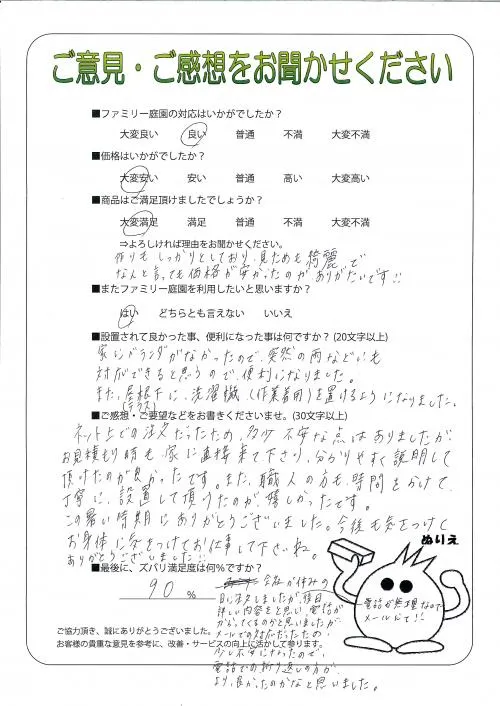 ご意見・ご感想をお聞かせください
■ファミリー庭園の対応はいかがでしたか？
大変良い 良い 普通 不満 大変不満
■価格はいかがでしたか？
大変安い 安い 普通 高い 大変高い
■商品はご満足頂けましたでしょうか？
大変満足 満足 普通 不満 大変不満
⇒よろしければ理由をお聞かせください。
作りもしっかりとしており、見ためも綺麗で
なんと言っても価格が安かったのがありがたいです!!
■またファミリー庭園を利用したいと思いますか？
はい どちらとも言えない いいえ
■設置されて良かった事、便利になった事は何ですか？(20文字以上)
家にベランダがなかったので、突然の雨などにも
対応できると思うので、便利になりました。
また、屋根下に、洗濯機(作業着用)を置けるようになりました。
(テラス)
■ご感想・ご要望などをお書きくださいませ。(30文字以上)
ネット上での注文だったため、多少不安な点はありましたが、
お見積もり時も家に直接来て下さり、分かりやすく説明して
頂けたのが良かったです。また、職人の方も、時間をかけて、
丁寧に、設置して頂けたのが嬉しかったです。
この暑い時期にありがとうございました。今後も気をつけて
お身体に気をつけてお仕事して下さいね。
ありがとうございました!!
■最後に、ズバリ満足度は何％ですか？
90 %
会社が休みの
日に注文しましたが、後日
詳しい内容をと思い、電話が
かかってくるのかと思いましたが、
メールでの対応だったため
少し不安になったので、
電話での折り返しの方が、
より、良かったのかなと思いました。
ぬりえ
電話が無理なので
メールにて!!
ご協力頂き、誠にありがとうございました。
お客様の貴重な意見を参考に、改善・サービスの向上に活かして参ります。